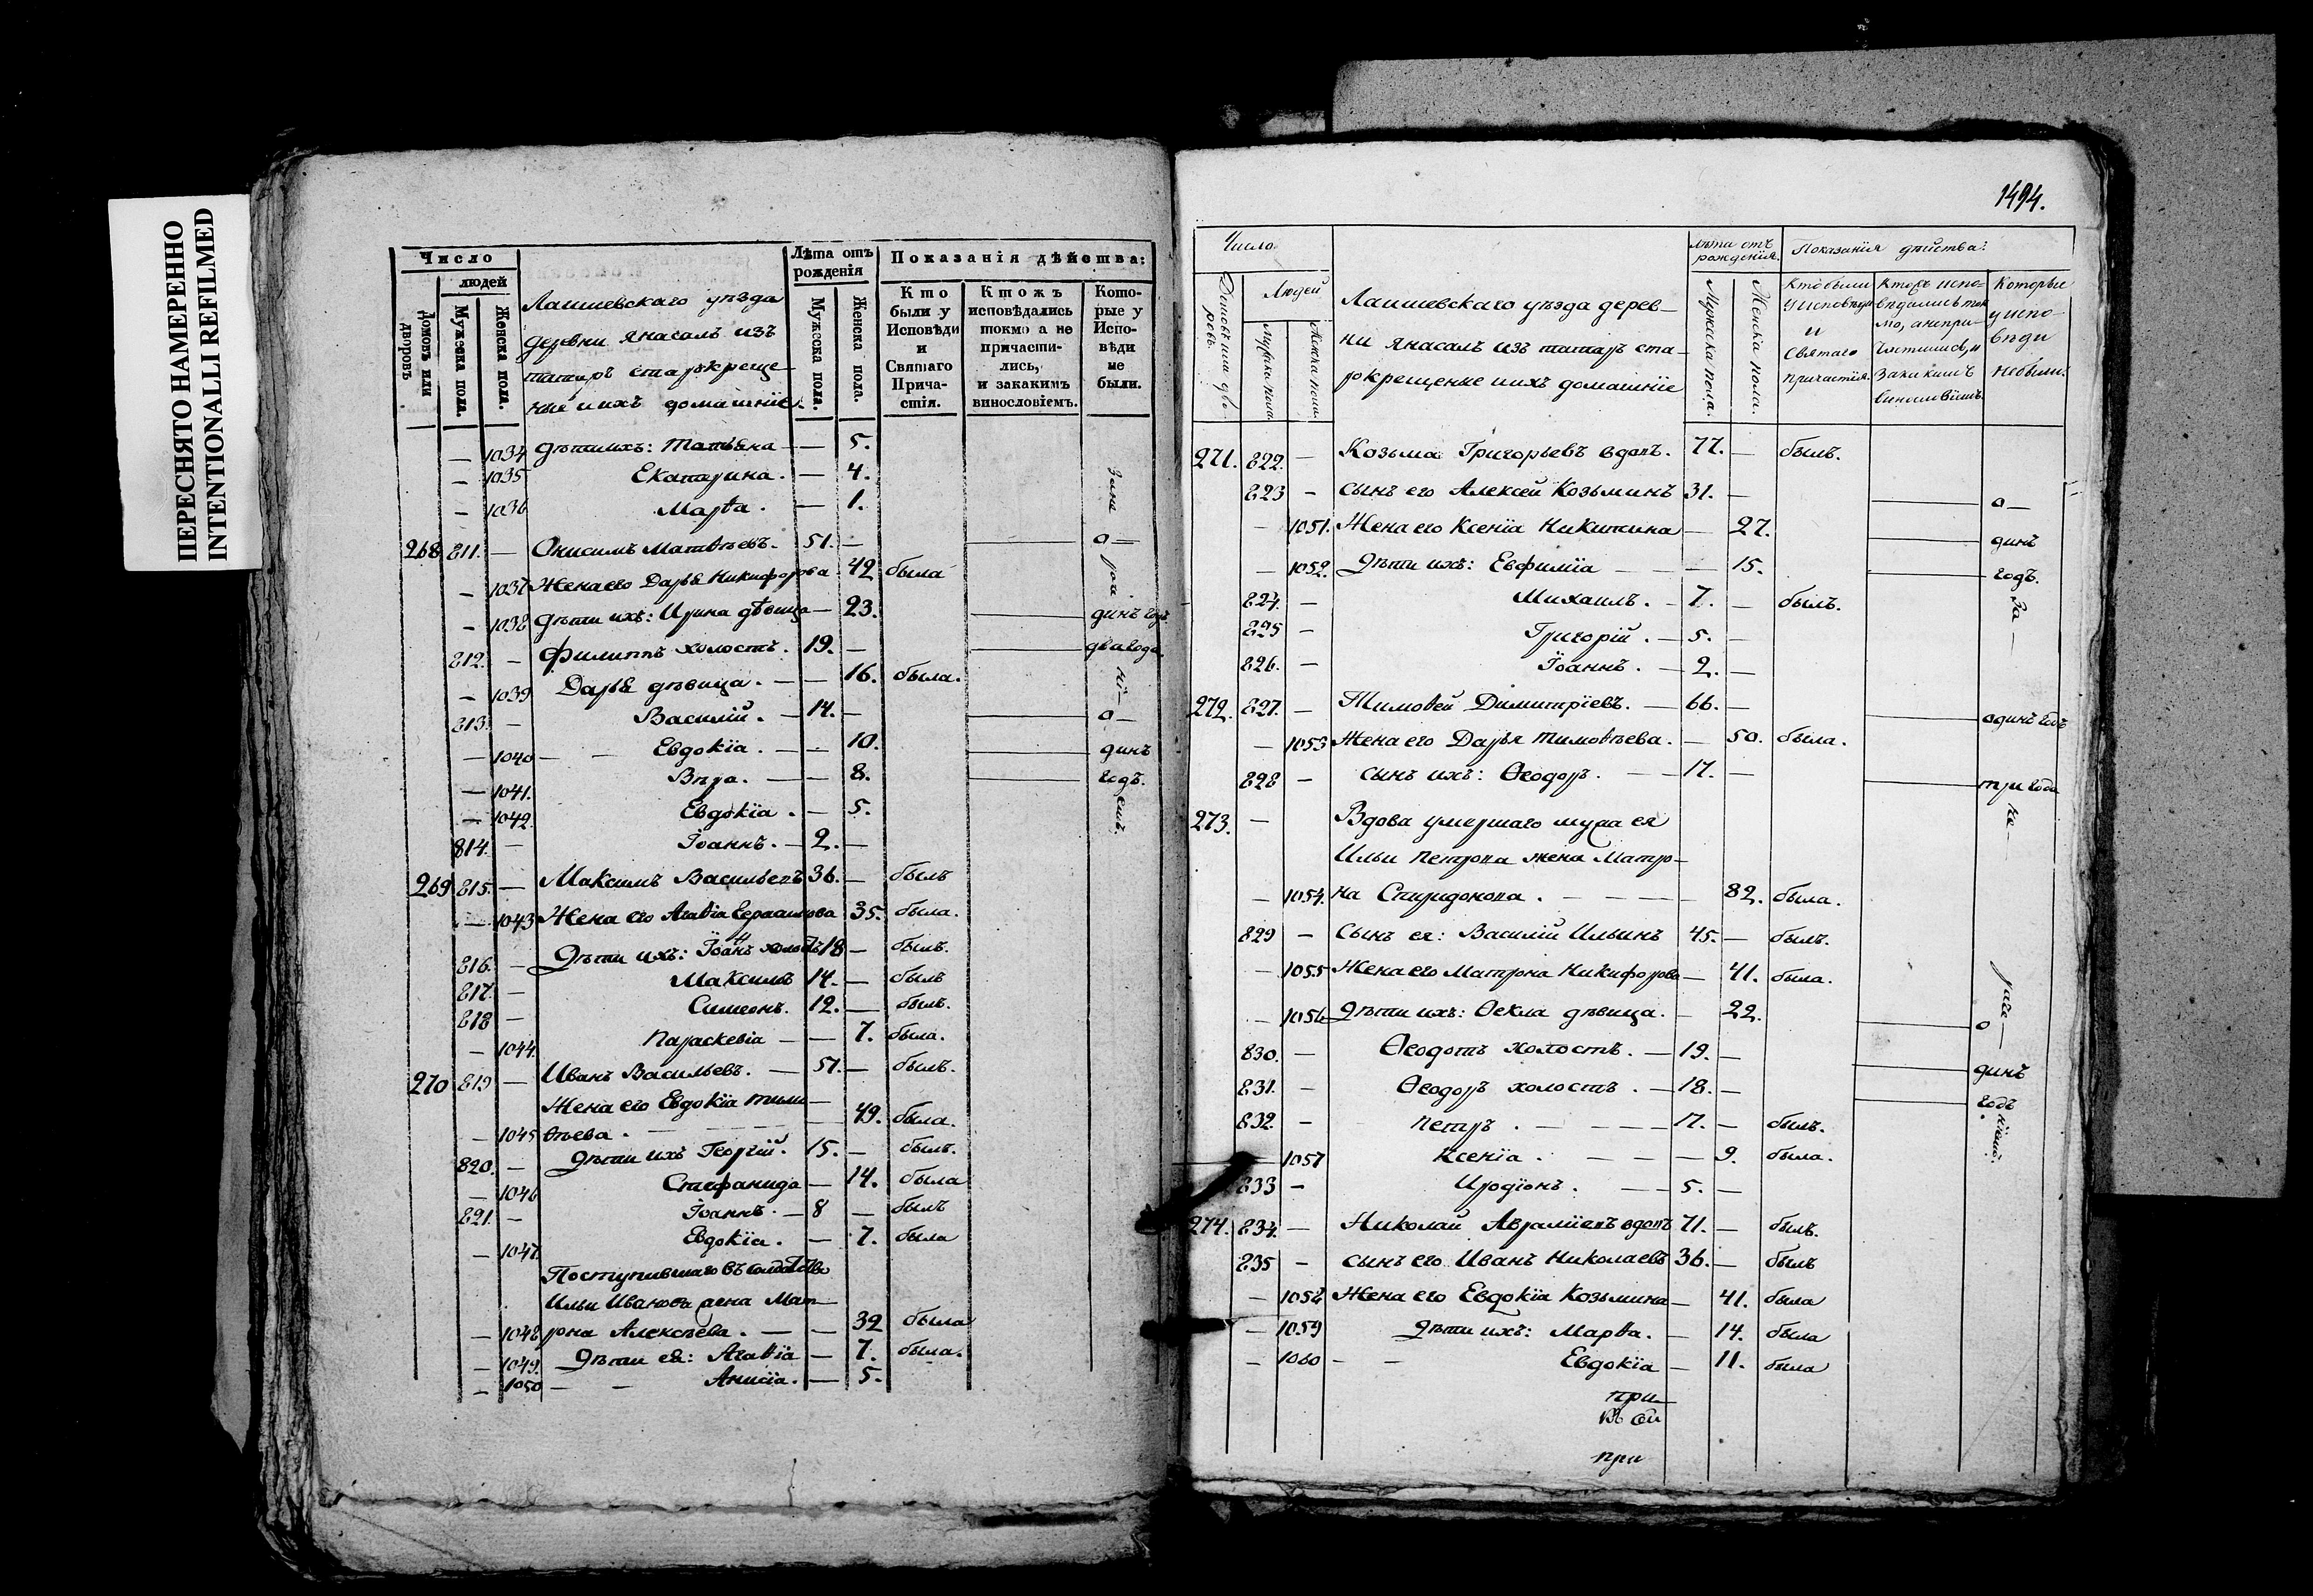 ПЕРЕСНЯТО НАМЕРЕННО
INTENTIONALLI REFILMED
Число
людей
Домовъ или дворовъ
Мужеска пола.
Женска пола.
Лаишевскаго уѣзда
деревни Янасалъ изъ
татаръ старокреще-
ные и ихъ домашніе.
Лѣта отъ рожденія
Мужеска пола.
Женска пола.
Показанія дѣйства:
Кто были у Исповѣди и Святаго Прича-стія.
Ктожъ исповѣдались токмо а не причасти-лись, и закакимъ винословіемъ.
Кото-рые у Испо-вѣди не были.
— 1034 Дѣти ихъ: Татьяна — 5.
— 1035 Екатерина. — 4.
— 1036 Марѳа. — 1.
268 811. — Онисимъ Матвѣевъ. 51. — о—
— 1037 Жена его Дарья Никифорова 42 была
— 1038 Дѣти ихъ: Ирина дѣвица — 23. динъ годъ
812. — Филиппъ холостъ. 19. — два года
— 1039 Дарья дѣвица. — — 16. была.
813. — Василій. — 14. — о—
— 1040 — — Евдокіа. — — 10. динъ
— 1041. Вѣра. — — 8. годъ.
— 1042. Евдокіа. — 5.
814. — Іоаннъ. — 2. —
269 815. — Максимъ Васильевъ 36. — былъ
— 1043 Жена его Агаѳіа 35. была.
816. — Дѣти ихъ: Іоанъ холостъ 18 — былъ.
817. — Максимъ 14. — былъ
818 — Симеонъ. 12. — былъ.
— 1044. Параскевіа — — 7. была.
270 819 — Иванъ Васильевъ. — 51. — былъ.
Жена его Евдокіа Тимо—
— 1045 ѳѣева. — — — — 49. была.
820. — Дѣти ихъ Георгій. 15. — былъ.
— 1046 Стефанида — 14. была
821. — Іоаннъ. — 8 — былъ
— 1047. Евдокіа. — 7. была
Поступившаго въ солдатство
Ильи Иванова жена Мат—
— 1048 рона Алексѣева. — — 32 была
— 1049. Дѣти ея: Агаѳіа — 7. была.
— 1050 — — Анисіа. — 5.
1494.
Число
Людей
Домовъ или дво-ровъ.
Мужска пола.
Женска пола.
Лаишевскаго уѣзда дерев—
ни Янасалъ изъ татаръ ста—
рокрещеные и ихъ домашніе
Лѣта отъ рожденія.
Мужска пола.
Женска пола.
Показанія дѣйства:
Кто были у исповѣди и святаго причастія.
Которые у испо-вѣди небыли.
271. 822. — Козьма Григорьевъ вдовъ. 77. — былъ.
823 — сынъ его Алексей Козьминъ 31. — о—
— 1051. Жена его Ксеніа Никитина — 27. динъ
— 1052. Дѣти ихъ: Евфиміа — — — 15. годъ.
824. — Михаилъ. — 7. — былъ.
825 — Григорій. — 5. —
826. — Іоаннъ. — 2. —
272. 827. — Тимоѳей Димитріевъ. — 66. — одинъ годъ
— 1053 Жена его Дарья Тимоѳѣева. — 50. была.
828 — сынъ ихъ: Ѳеодоръ. — — 17. — три года
273. — Вдова умершаго мужа ея
Ильи Петрова жена Матро—
— 1054. на Спиридонова. — — — — 82. была.
829 — Сынъ ея: Василій Ильинъ 45. — былъ.
— 1055 Жена его Матрона Никифорова — 41. была.
— 1056 Дѣти ихъ: Ѳекла дѣвица. — 22. о
830. — Ѳеодотъ холостъ. — 19. — динъ
831. — Ѳеодоръ холостъ. — 18. — годъ
832. — Петръ. — — — — 17. — былъ.
— 1057 Ксеніа. — — — — 9. была.
833 — Иродіонъ. — — 5. —
274. 834. — Николай Авраміевъ вдовъ 71. — былъ.
835 — сынъ его Иванъ Николаевъ 36. — былъ
— 1058 Жена его Евдокіа Козьмина — 41. была
— 1059 Дѣти ихъ: Марѳа. — 14. была
— 1060 — — Евдокіа — 11. была
при
при